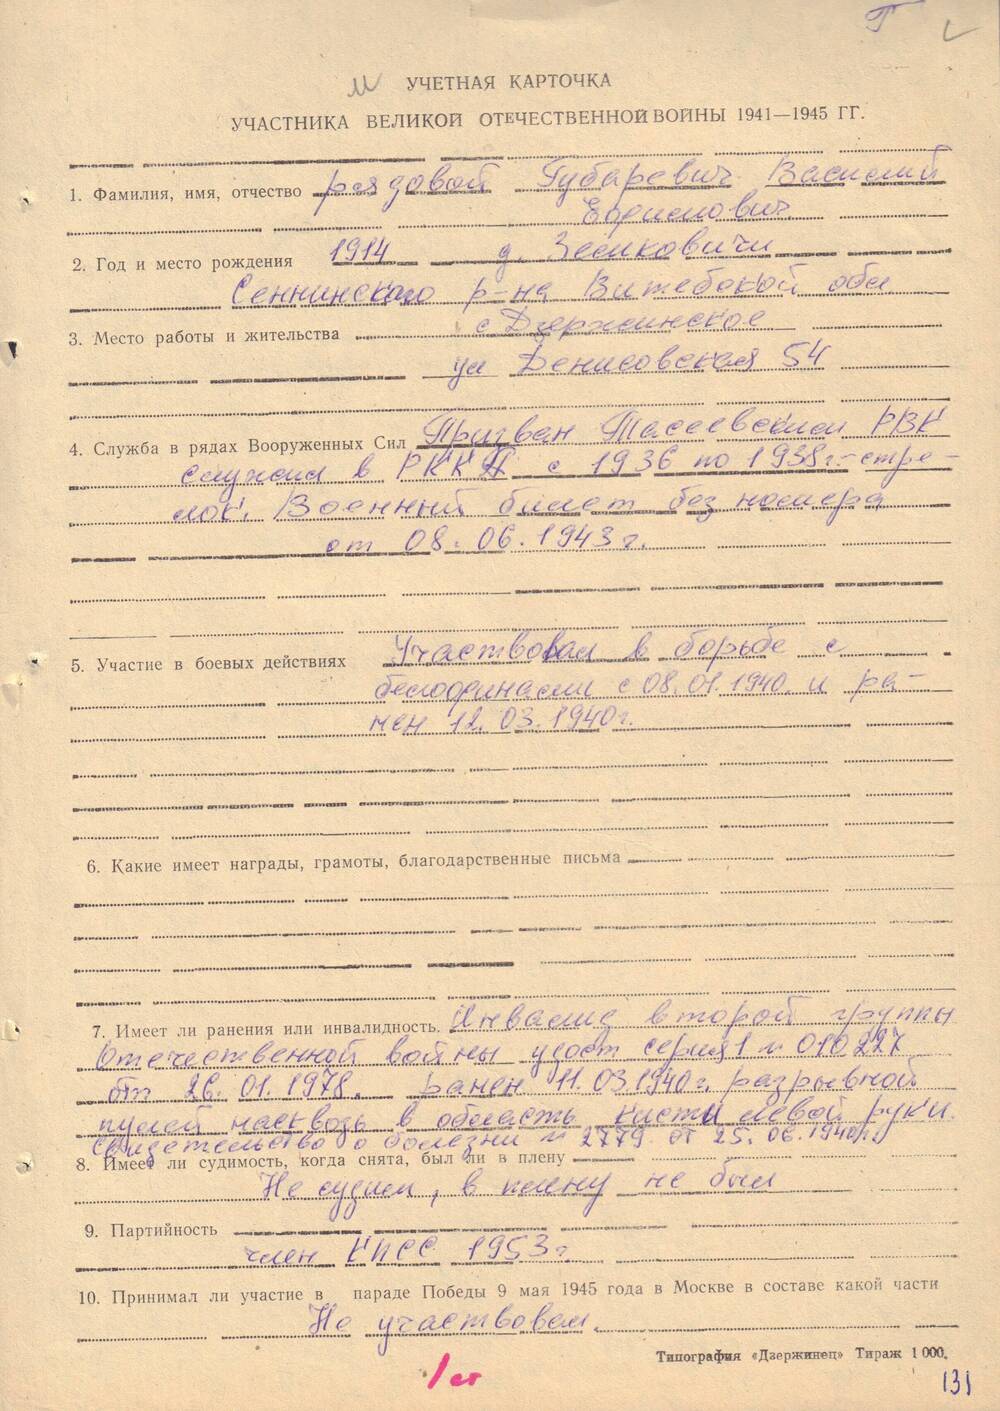 Г
УЧЕТНАЯ КАРТОЧКА
УЧАСТНИКА ВЕЛИКОЙ ОТЕЧЕСТВЕННОЙ ВОЙНЫ 1941—1945 ГГ.
1. Фамилия, имя, отчество рядовой Губаревич Василий
Борисович
2. Год и место рождения 1914 д. Зеликовичи
Сеннинского р-на Витебской обл
3. Место работы и жительства с Дзержинское
ул Денисовская 54
4. Служба в рядах Вооруженных Сил Призван Тасеевским РВК
служил в РККА с 1936 по 1938г.-стре-
лок. Военный билет без номера
от 08. 06. 1943 г.
5. Участие в боевых действиях Участвовал в борьбе с
белофинами с 08.01.1940. и ра-
нен 12.03.1940г.
6. Какие имеет награды, грамоты, благодарственные письма
7. Имеет ли ранения или инвалидность. Инвалид второй группы
Отечественной войны удост серия 1 № 010227
от 26.01.1978. ранен 11.03.1940г. разрывной
пулей насквозь в область кисти левой руки.
Свидетельство о болезни № 2779 от 25.06.1940г.
8. Имеет ли судимость, когда снята, был ли в плену
Не судим, в плену не был
9. Партийность
член КПСС 1953г.
10. Принимал ли участие в параде Победы 9 мая 1945 года в Москве в составе какой части
Не участвовал.
Типография «Дзержинец» Тираж 1 000.
1 ст
131